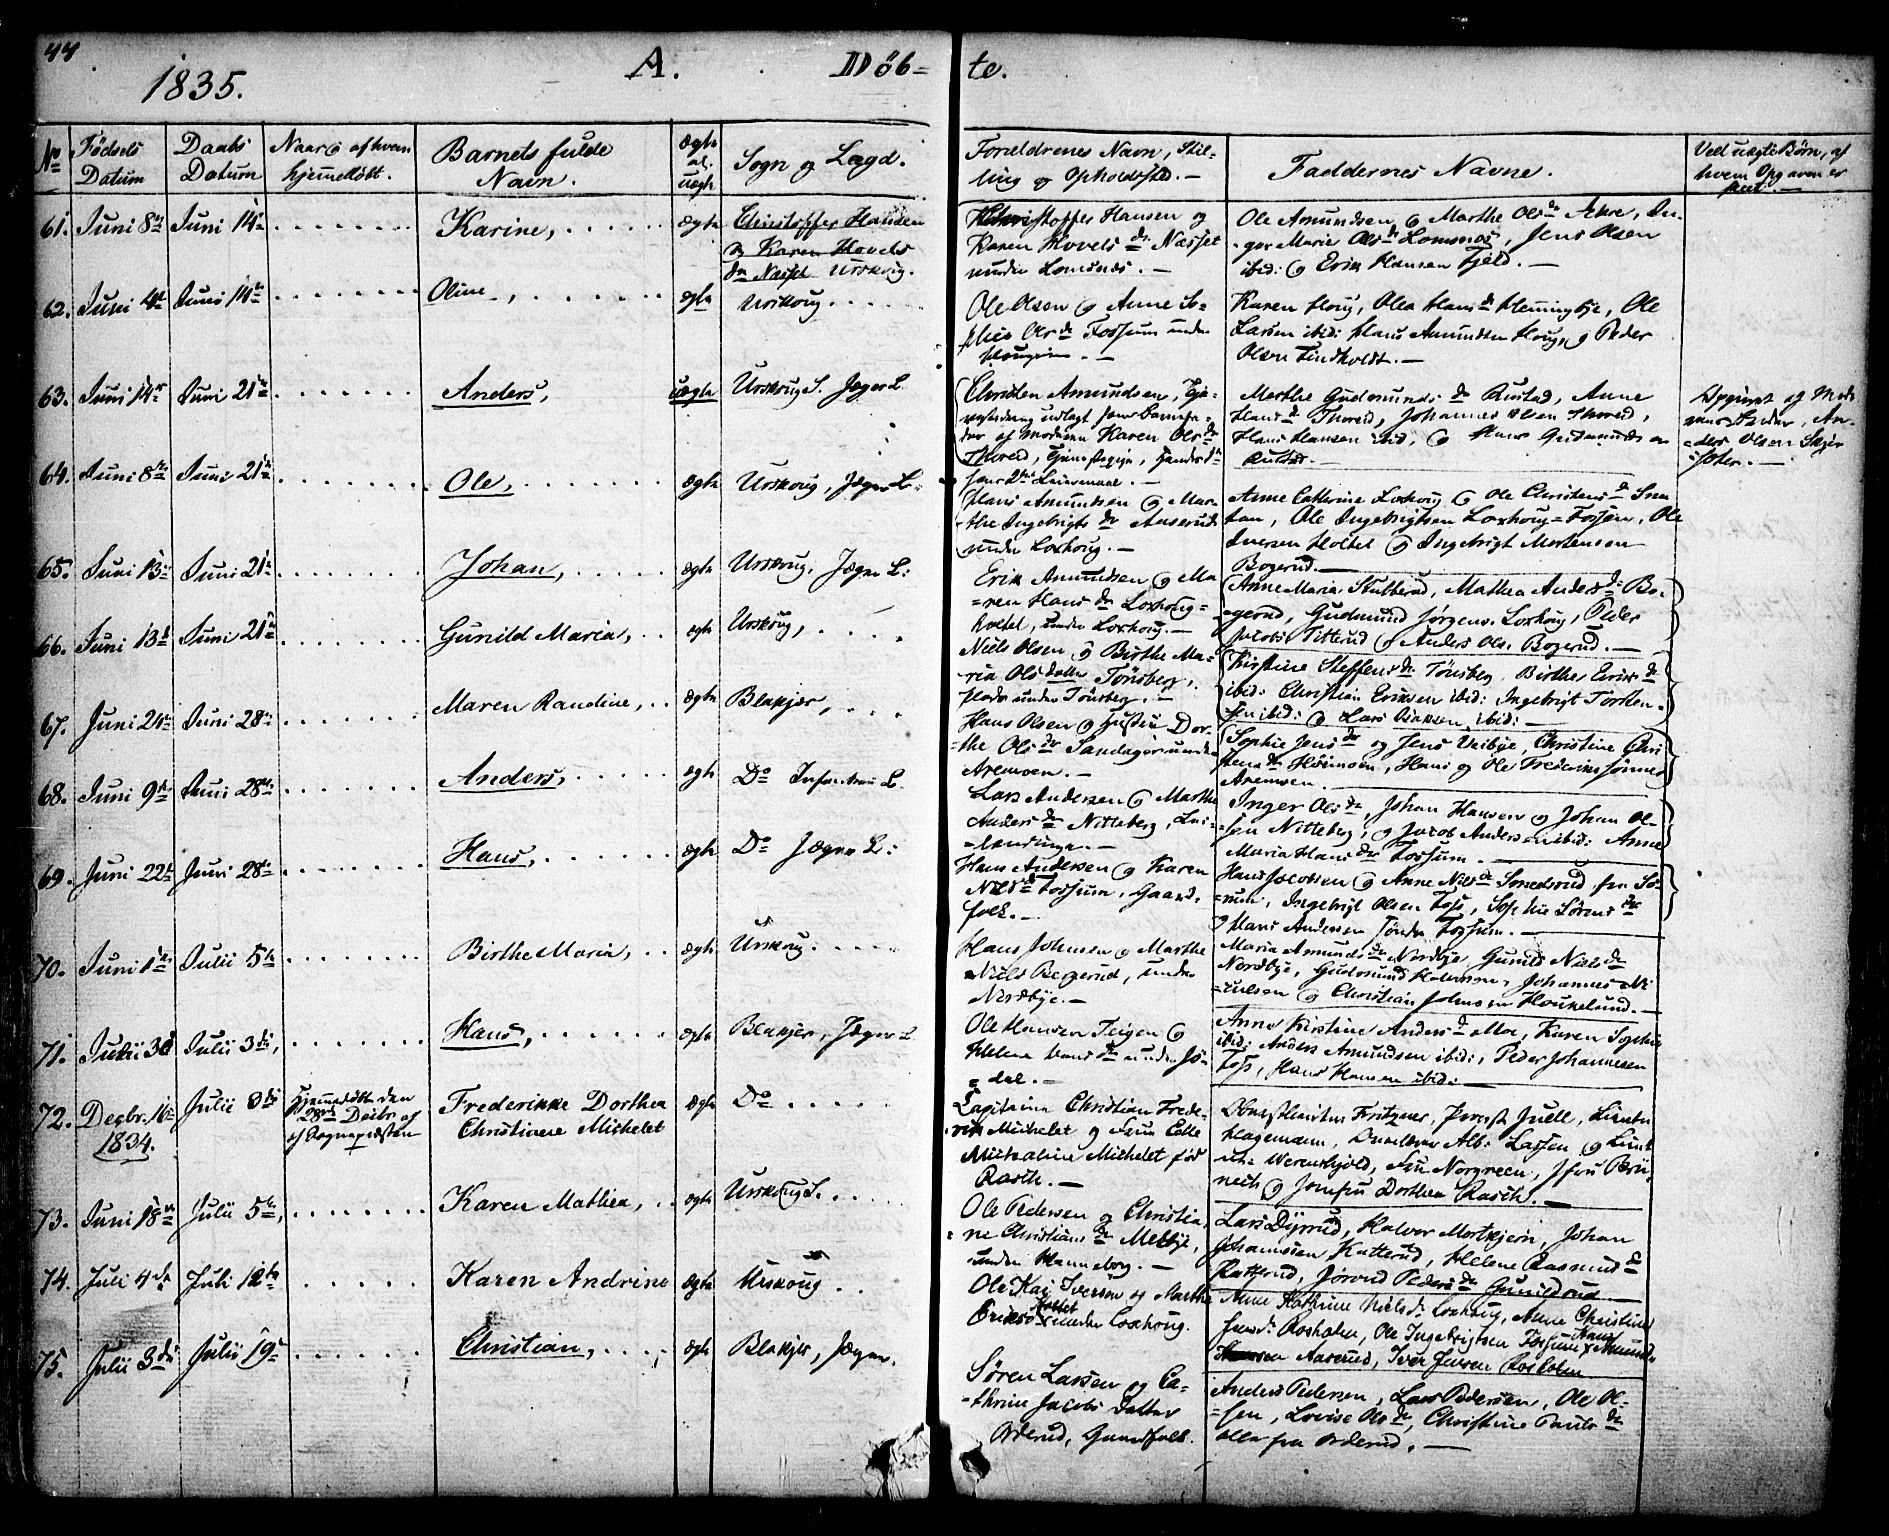 44
1835.
A. Døb= te.
No
Fødsels Datum
Daabs Datum
Naar og af hvem hjemmedøbt.
Barnets fulde Navn.
ægte al. uægte
Sogn og Lægd.
Forældrenes Navn, Stil-
ling og Opholdssted. —
Faddernes Navne.
Ved uægte Børn, af
hvem Opgaven er
skeet. —
61. Juni 8de Juni 14de Karine, ægte Christopher Hansen
og Karen Hovels
dr Næsset Urskoug.
Christoffer Hansen og
Karen Hovels dr Næsset
under Lomsnæs. —
Ole Amundsen og Marthe Olsdr Achre, In-
ger Marie Olsdr Lomsnæs, Jens Olsen
ibid: og Erik Hansen Fjeld. —
62. Juni 4de Juni 14de Oline, ægte Urskoug
Ole Olsen og Anne So-
phie Olsdr Fossum under
Hougen. —
Karen Houg, Olea Hansdr Henningbye, Ole
Larsen ibid: Hans Amundsen Houg, og Peder
Olsen Lindholdt. —
63. Juni 14de Juni 21de Anders, uægte Urskoug S. Jæger L.
Christen Amundsen, Tje-
nestedreng udlagt som Barnefa-
der af Moderen Karen Olsdr
Thoreid, Tjenestepige, Hendes 1ste
hans 2det Leiermaal. —
Marthe Gudmundsdr Rustad, Anne
Hansdr Thoreid, Johannes Olsen Thoreid,
Hans Hansen ibid, og Hans Gudmundsen
Rustad. —
Opgivet af Mode-
rens Fader, An-
ders Olsen
64. Juni 8de Juni 21de Ole, ægte Urskoug, Jæger L.
Hans Amundsen og Mar-
the Ingebrigtsdr Aaserud
under Loxhoug. —
Anne Cathrine Loxhoug og Ole Christensdr
Ole Ingebrigtsen Loxhoug=Fossen, Ole
Iversen Holtet og Ingebrigt Mortensen
Bogerud. —
65. Juni 13de Juni 21de Johan, ægte Urskoug, Jæger L:
Erik Amundsen og Ma
=ren Hansdr Loxhoug=
holtet, under Loxhoug. —
Anne Maria Stubberud, Mathea Andersdr Bo-
gerud, Gudmund Jørgens. Loxhoug, Peder
Jacobs. Titterud og Anders Ols. Bogerud. —
66. Juni 13de Juni 21de Gunild Maria, ægte Urskoug,
Niels Olsen og Birthe Ma-
ria Olsdatter Tønsberg,
under Tønsberg. —
Kirstine Steffensdr Tønsberg, Birthe Eriksdr
ibid: Christian Eriksen ibid: Ingebrigt Torsten-
sen ibid: og Lars ibid: —
67. Juni 24de Juni 28de Maren Randine, ægte Blakjer,
Hans Olsen og Hustru Dor-
=the Olsdr Sandager under
Aremoen. —
Sophie Jensdr og Jens Veibye, Christine Chri
stensdr Hornmoen, Hans og Ole Frederiks sønner
Aremoen.
68. Juni 9de Juni 28de Anders, ægte Do Infanteri L.
Lars Andersen og Marthe
Andersdr Nitteberg, Lei-
lændinge. —
Inger Olsdr, Johan Hansen og Johan Ol-
sen Nitteberg, og Jacob Andersen ibid: Anne
Maria Hansdr Fossum. —
69. Juni 22de Juni 28de Hans, ægte Do Jæger L:
Hans Andersen og Karen
Nilsdr Fossum, Gaard-
folk. —
Hans Jacobsen og Anne Nilsdr Smedsrud fra Sø-
=rum, Ingebrigt Olsen Foss, Sophie Sørensdr
og Hans Andersen Tønder Fossum. —
70. Juni 1ste Julii 5te Birthe Maria, ægte Urskoug.
Hans Johnsen og Marthe
Niels Bergerud, under
Nordbye. —
Maria Amundsdr Nordbye, Gunild Nielsdr
Nordbye, Gudmund Halvorsen, Johannes Ni
=culsen og Christian Johnsen Haukelund. —
71. Julii 3de Julii 3die, Hans, ægte Blakjer, Jæger L.
Ole Hansen Teigen og
Helene Hansdr under Jø-
=dal. —
Anne Kirstine Andersdr Moe, Karen Sophie
ibid: Anders Amundsen ibid: Peder Johannesen
Foss, Hans Hansen ibid: —
72. Decbr. 16de
1834.
Julii 3die Hjemmedøbt den
28de Decbr. af
Sognepræsten
Frederikke Dorthea
Christiane Michelet
ægte Do
Capitaine Christian Frede-
rik Michelet og Frue Edle
Michaeline Michelet født
Rasch. —
Oberstlieutn Fritzner, Provst Juell, Lieutn
Hagemann, Alb: Lassen og Lieut
n: Werenskjold, Fru Norgreen, Frue Brü-
nech og Jomfru Dorthea Rasch. —
73. Juni 18de Julii 5te, Karen Mathea, ægte Urskoug S.
Ole Pedersen og Christia-
=ne Christiansdr Melbye,
under Hanneborg. —
Lars Dyrrud, Halvor Mortkjern, Johan
Johannesen Katterud, Helene Rasmusdr
Katterud, Jørand Pedersdr Gunildrud —
74. Juli 4de Juli 12te Karen Andrine ægte Urskoug
Ole Kaj Iversen og Marthe
Eriksd. Holtet under Loxhoug.
Anne Kathrine Nielsdr Loxhoug, Anne Christine
Jensdr Rosholen, Ole Ingebrigtsen Fossum, Hans Amund-
sen Aaserud, Iver Jensen Rosholen
75. Julii 3die Julii 19de Christian, ægte Blakjer, Jæger.
Søren Larsen og Ca-
=thrine Jacobs datter
Orderud, Gaardfolk.
Anders Pedersen, Lars Pedersen, Ole Ol-
=sen, Lovise Olsdr, Christine Paulsdr
alle fra Orderud. —